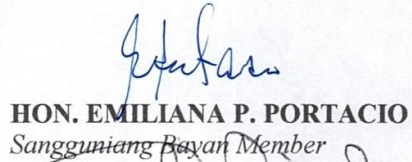 HON. EMILIANA P. PORTACIO
Sangguniang Bayan Member